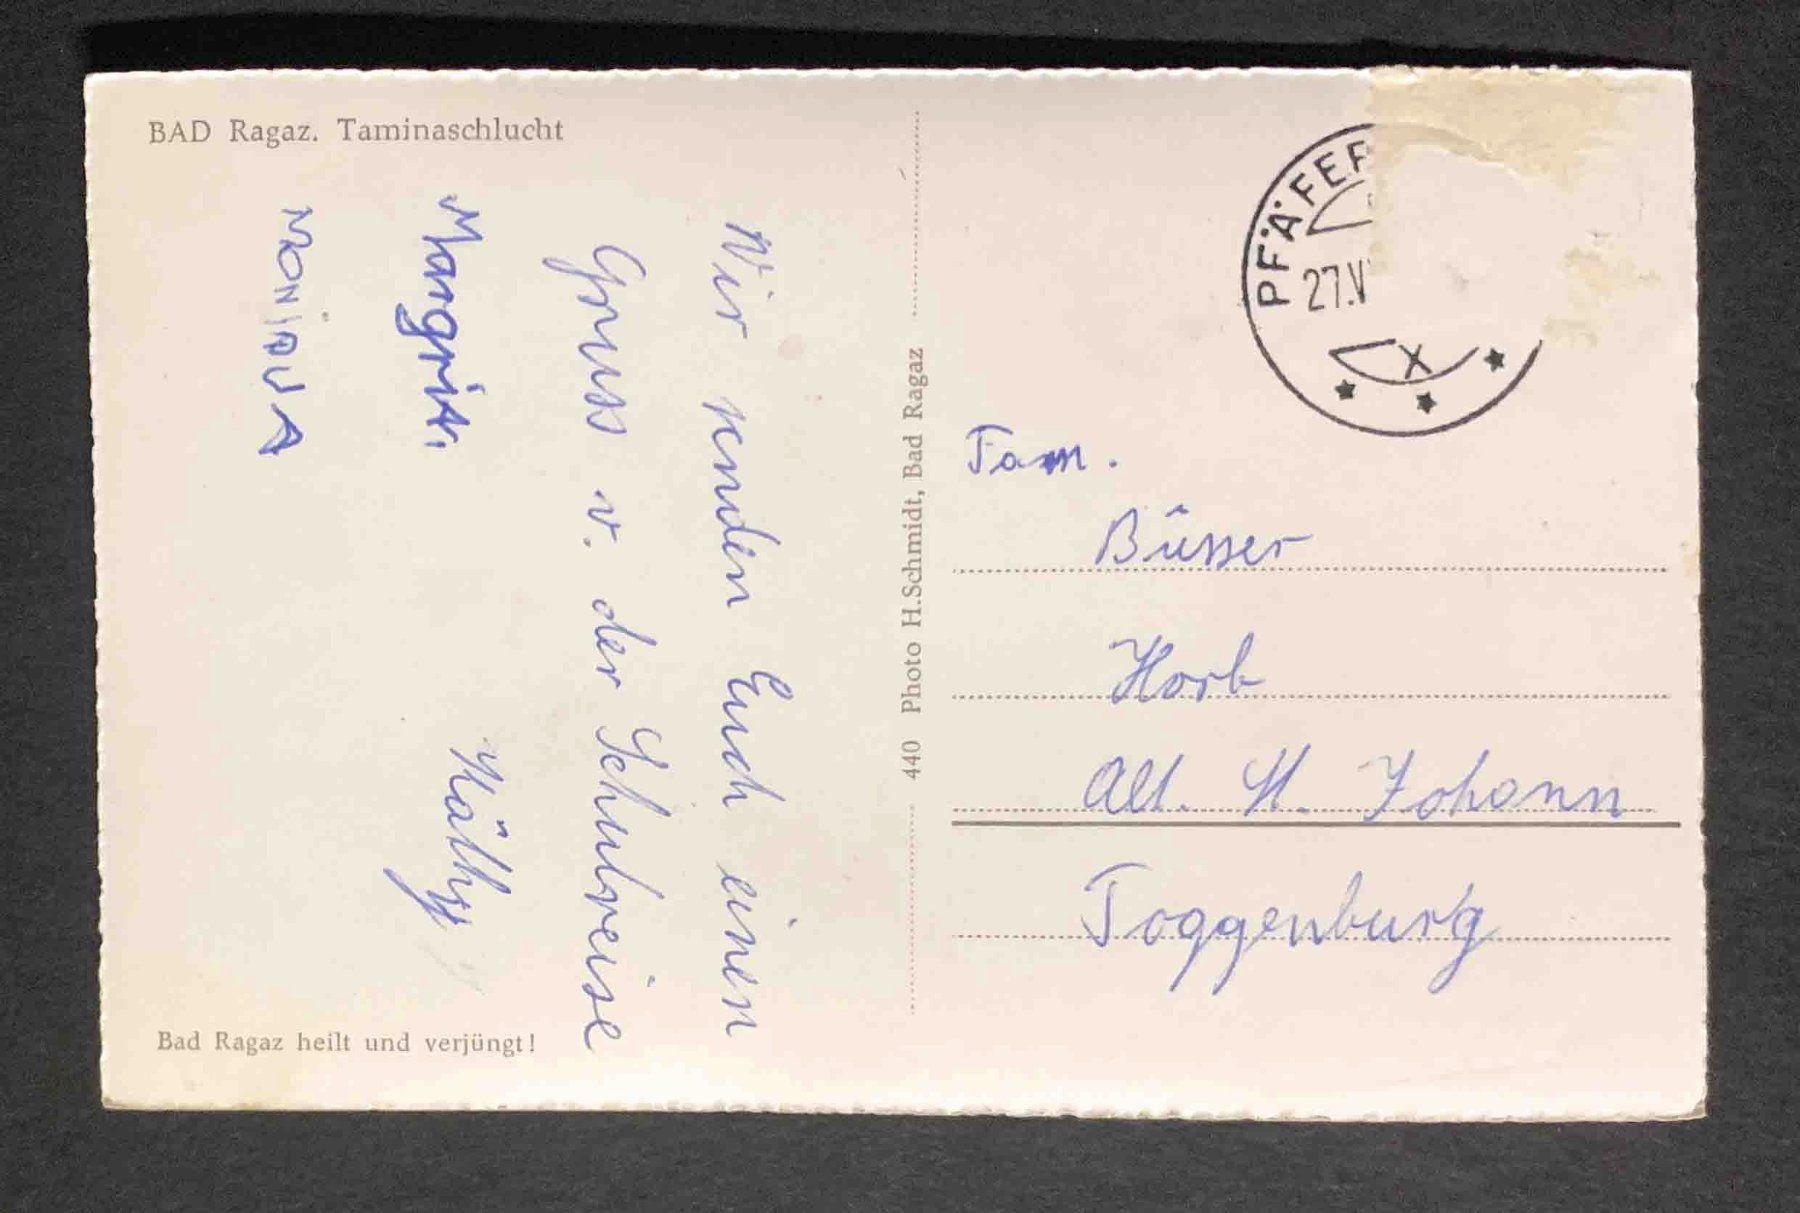 BAD Ragaz. Taminaschlucht
Wir senden Euch einen
Gruss v. der Schulreise
Margrit.
Käthy
MONIKA
Bad Ragaz heilt und verjüngt!
440 Photo H.Schmidt, Bad Ragaz
PFÄFER
27.V
Fam.
Büsser
Horb
Alt. St. Johann
Toggenburg